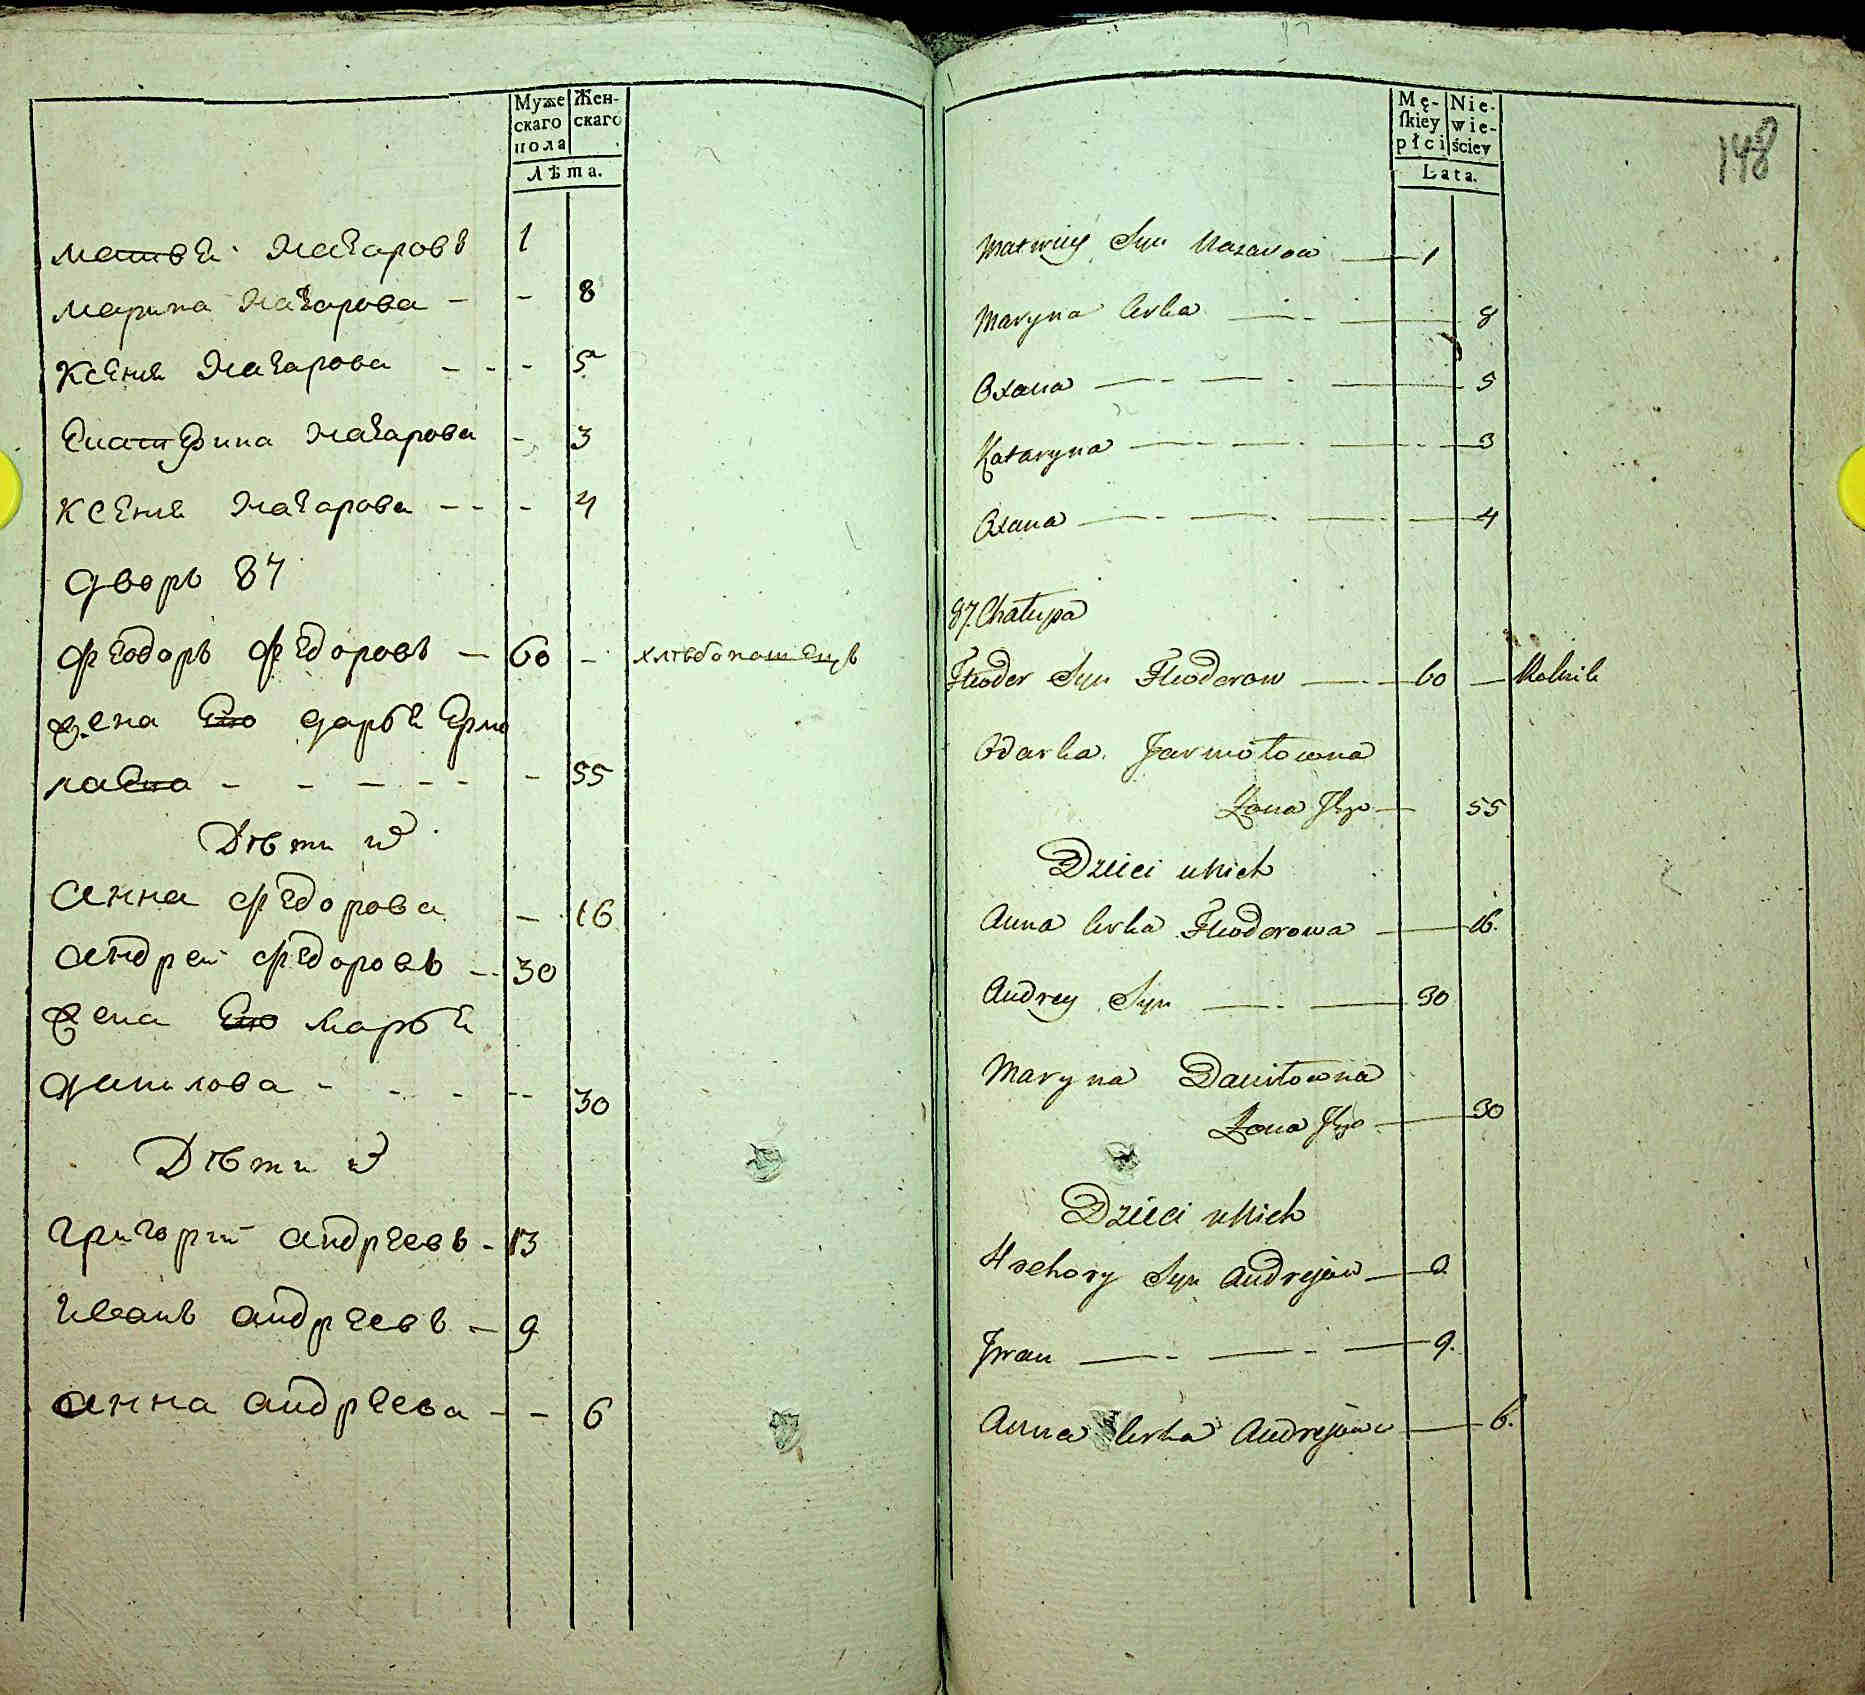 Муже
скаго
пола
Жен-
скаго
Лѣта.
Матвѣй Макаровъ 1
Марина Макарова - - 8
Ксенія Макарова - - - 5
Екатерина Макарова - 3
Ксенія Макарова - - - 4
Дворъ 87
Феодоръ Федоровъ - 60 - хлѣбопашецъ
Жена Его Дарья Ермо
лаева - - - - - - 55
Дѣти их
Анна Федорова - 16
Андрей Федоровъ - - 30
Жена Его Марья
Данилова - - - - - 30
Дѣти их
Григорий Андреевъ - 13
Иванъ Андреевъ - 9
Анна Андреева - - 6
Mę-
ſkiey
płci
Nie-
wie-
ściey
Lata.
148
Matwiey Syn 1
Maryna Corka 8
Oxana 5
Kataryna 3
Oxana 4
87. Chałupa
Fteoder Syn Fteodorow 60 - Rolnik
Odarka Jarmołowna
Żona Jego 55
Dzieci u Nich
Anna Corka Fteodorowa 16.
Andrey Syn 30
Maryna Daniłowna
Żona Jego 30
Dzieci u Nich
Hrehory Syn Andrejow
Jwan 9.
Anna Corka Andrejowa 6.